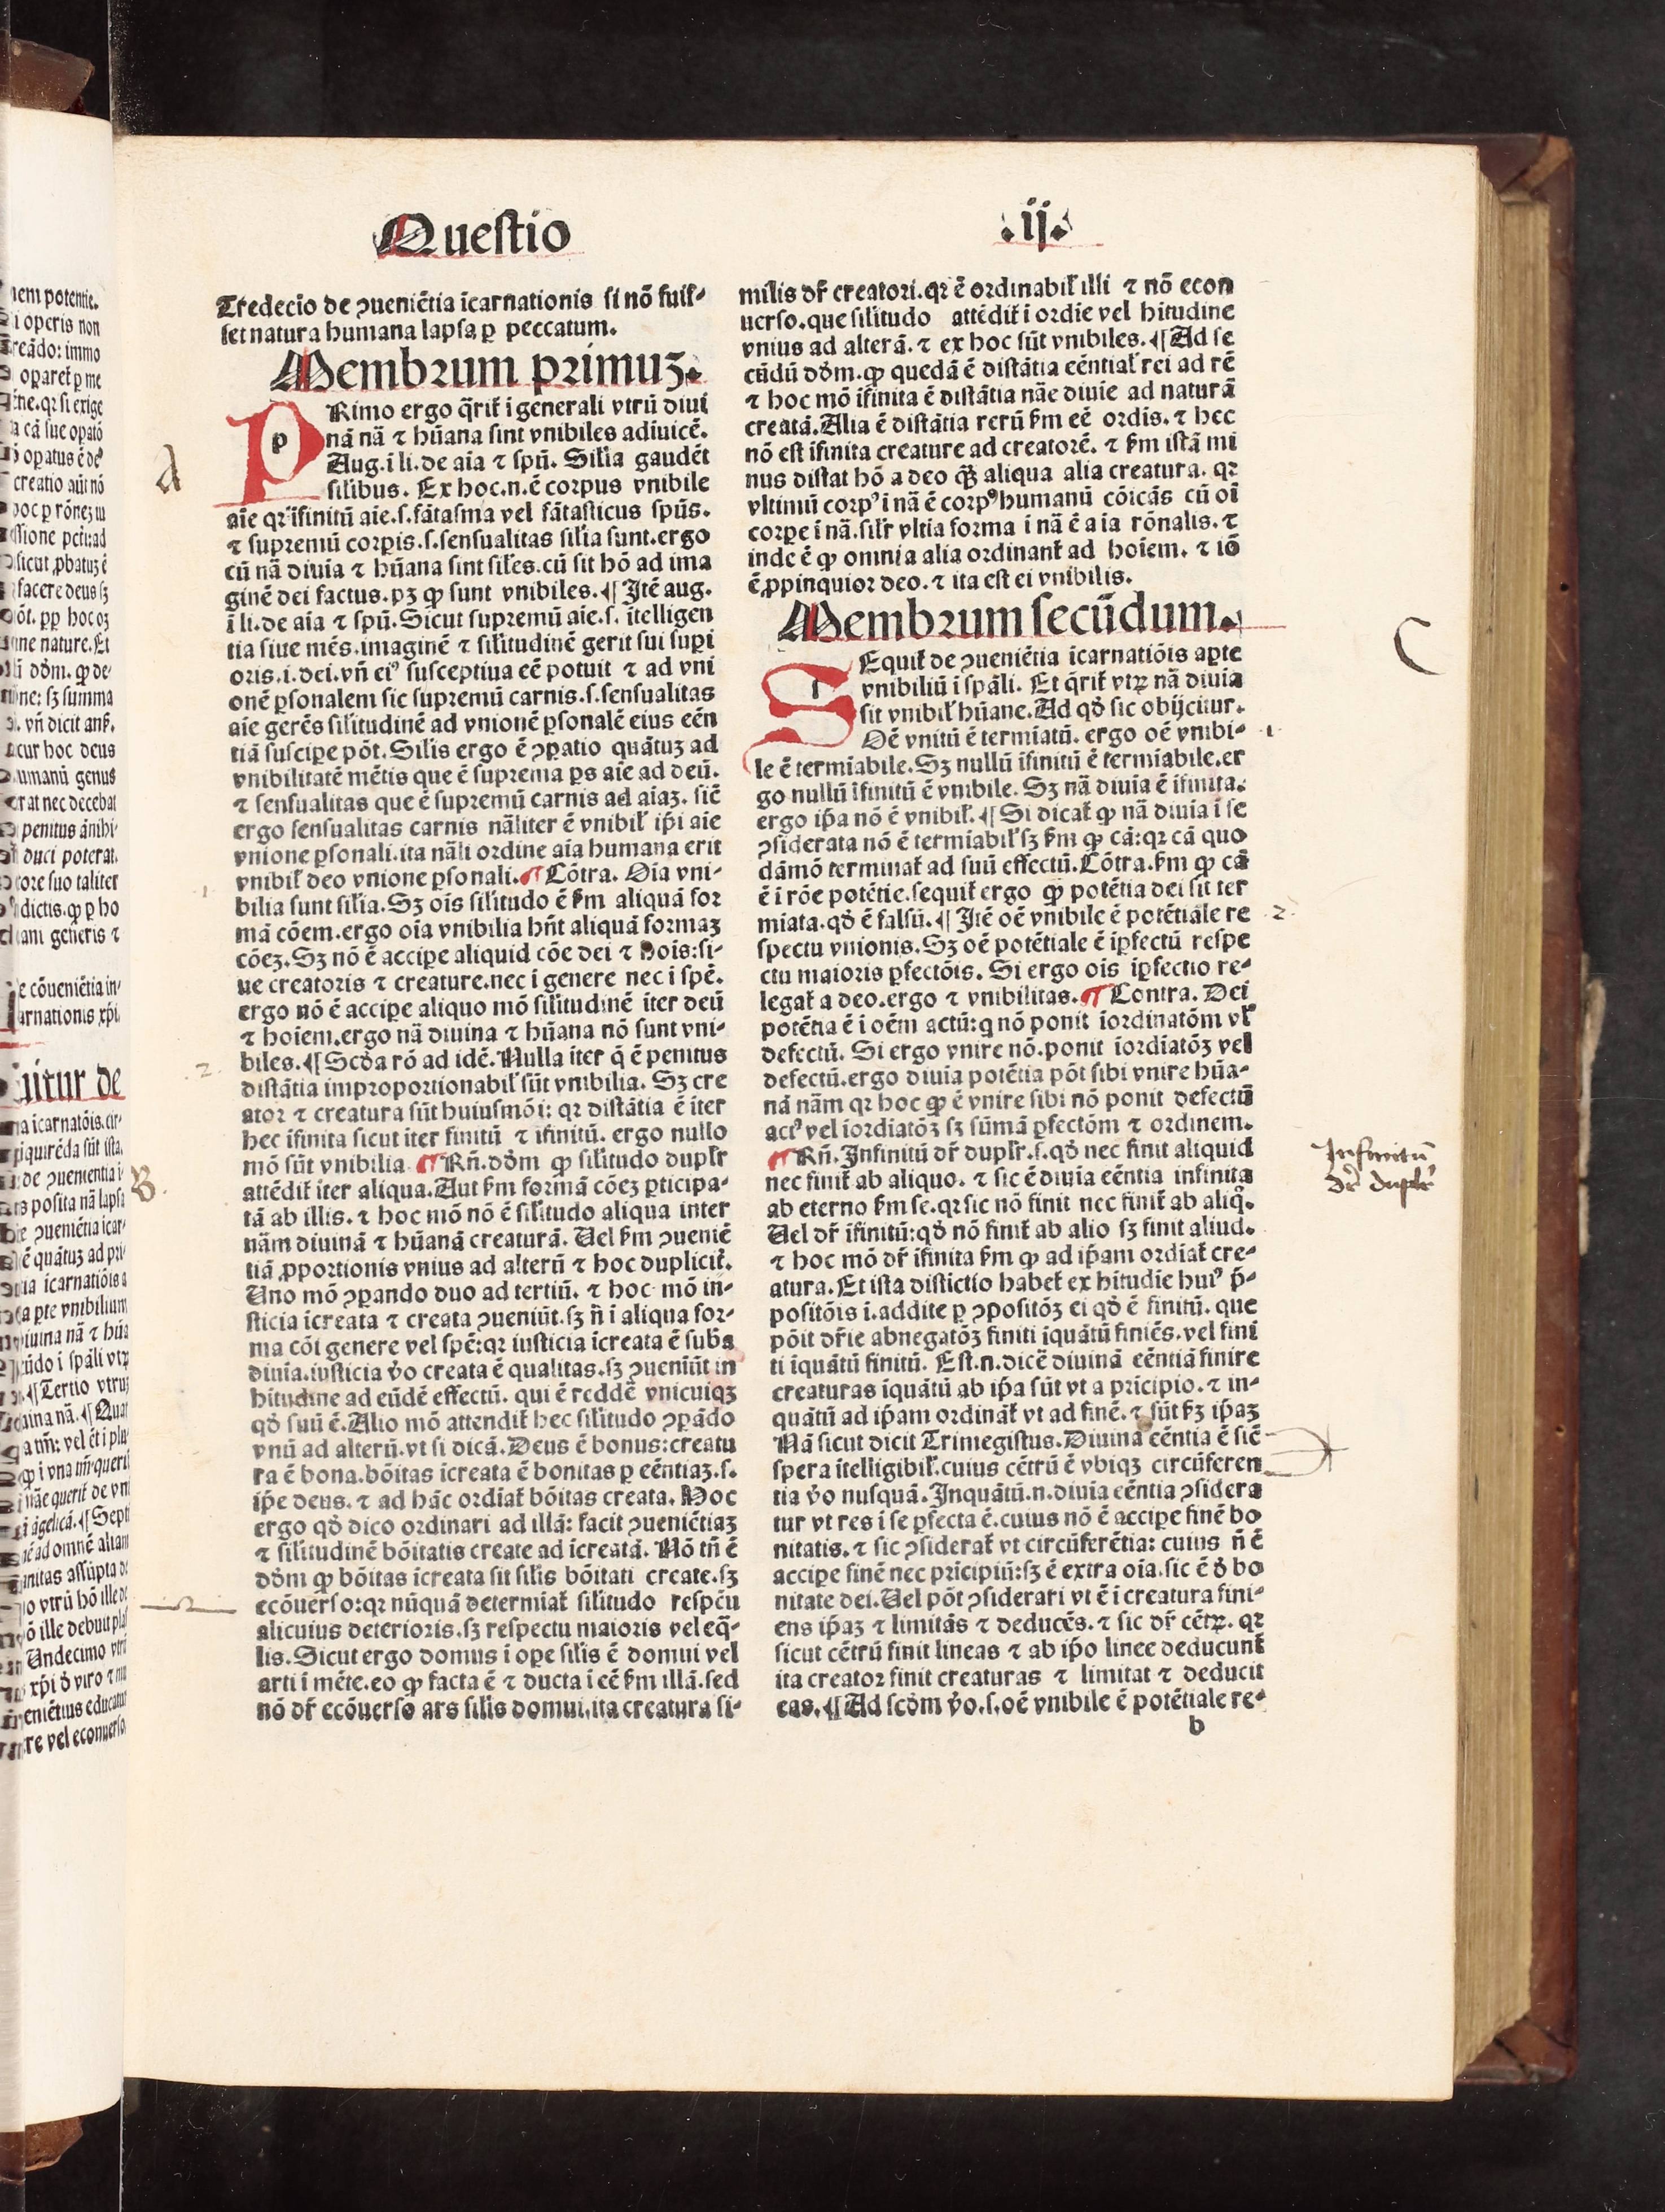 Questio .ij.
Tredecĩo de ꝯueniẽtia icarnationis si nõ fuis⸗
set natura humana lapsa ꝑ peccatum.
Membrum primuꝫ.
PRimo ergo q̃rit᷑ i generali vtrũ diui
nã nã ⁊ hũana sint vnibiles adiuicẽ.
Aug. i li. de aĩa ⁊ spũ. Silĩa gaudẽt
silibus. Ex hoc.n.ẽ corpus vnibile
aĩe qꝛ ĩfinitũ aĩe.s.fãtasma vel fãtasticus spũs.
⁊ supremũ corpĩs.s.sensualitas silĩa sunt.ergo
cũ nã diuĩa ⁊ hũana sint siles.cũ sit hõ ad ima
ginẽ dei factus.pꝫ ꝙ sunt vnibiles.¶ Itẽ aug.
ĩ li.de aĩa ⁊ spũ. Sicut supremũ aĩe.s. ĩtelligen
tia siue mẽs.imaginẽ ⁊ silitudinẽ gerit sui supi
oris.i.dei.vñ eiꝰ susceptiua eẽ potuit ⁊ ad vni
onẽ ꝑsonalem sic supremũ carnis.s.sensualitas
aĩe gerẽs silitudinẽ ad vnionẽ ꝑsonalẽ eius eẽn
tiã suscipe põt. Silis ergo ẽ ꝯꝑatio quãtuꝫ ad
vnibilitatẽ mẽtis que ẽ suprema ꝑs aĩe ad deũ.
⁊ sensualitas que ẽ supremũ carnis ad aĩaꝫ. siẽ
ergo sensualitas carnis nãliter ẽ vnibil᷑ ip̃i aĩe
vnione ꝑsonali.ita nãli ordine aĩa humana erit
vnibil᷑ deo vnione ꝑsonali.¶ Cõtra. Oĩa vni⸗
bilia sunt silĩa. Sꝫ oĩs silitudo ẽ ẜm aliquã for
mã cõem.ergo oĩa vnibilia hñt aliquã formaꝫ
cõeꝫ. Sꝫ nõ ẽ accipe aliquid cõe dei ⁊ hoĩs:si⸗
ue creatoris ⁊ creature.nec i genere nec i spẽ.
ergo nõ ẽ accipe aliquo mõ silitudinẽ iter deũ
⁊ hoĩem.ergo nã diuina ⁊ hũana nõ sunt vni⸗
biles.¶ Scďa rõ ad idẽ. Nulla iter q̃ ẽ penitus
distãtia improportionabil᷑ sũt vnibilia. Sꝫ cre
ator ⁊ creatura sũt huiusmõi: qꝛ distãtia ẽ iter
hec ifinita sicut iter finitũ ⁊ ifinitũ. ergo nullo
mõ sũt vnibilia ¶ Rñ.dõm ꝙ silitudo dupl᷑r
attẽdit᷑ iter aliqua. Aut ẜm formã cõeꝫ ꝑticipa⸗
tã ab illis. ⁊ hoc mõ nõ ẽ silitudo aliqua inter
nãm diuinã ⁊ hũanã creaturã. Uel ẜm ꝯueniẽ
tiã ꝓportionis vnius ad alterũ ⁊ hoc duplicit᷑.
Uno mõ ꝯꝑando duo ad tertiũ. ⁊ hoc mõ in⸗
sticia icreata ⁊ creata ꝯueniũt.sꝫ ñ i aliqua for⸗
ma cõi genere vel spẽ:qꝛ iusticia icreata ẽ sub̃a
diuia.iusticia ṽo creata ẽ qualitas.sꝫ ꝯueniũt in
hitudine ad eũdẽ effectũ. qui ẽ reddẽ vnicuiqꝫ
qď suũ ẽ. Alio mõ attendit᷑ hec silitudo ꝯꝑãdo
vnũ ad alterũ.vt si dicã. Deus ẽ bonus:creatu
ra ẽ bona.bõitas icreata ẽ bonitas ꝑ eẽntiaꝫ.s.
ip̃e deus. ⁊ ad hãc ordiat᷑ bõitas creata. Hoc
ergo qď dico ordinari ad illã: facit ꝯueniẽtiaꝫ
⁊ silitudinẽ bõitatis create ad icreatã. Nõ tñ ẽ
dõm ꝙ bõitas icreata sit silis bõitati create.sꝫ
ecõuerso:qꝛ nũquã determiat᷑ silitudo respc̃u
alicuius deterioris.sꝫ respectu maioris vel eq̃⸗
lis. Sicut ergo domus i ope silis ẽ domui vel
arti i mẽte.eo ꝙ facta ẽ ⁊ ducta i eẽ ẜm illã.sed
nõ dr̃ ecõuerso ars silis domui.ita creatura si⸗
milis dr̃ creatori.qꝛ ẽ ordinabil᷑ illi ⁊ nõ econ
uerso.que silitudo attẽdit᷑ i ordie vel hitudine
vnius ad alterã. ⁊ ex hoc sũt vnibiles.¶ Ad se
cũdũ dõm.ꝙ quedã ẽ distãtia eẽntial᷑ rei ad rẽ
⁊ hoc mõ ifinita ẽ distãtia nãe diuie ad naturã
creatã. Alia ẽ distãtia rerũ ẜm eẽ ordis. ⁊ hec
nõ est ifinita creature ad creatorẽ. ⁊ ẜm istã mi
nus distat hõ a deo q̃ꝫ aliqua alia creatura. qꝛ
vltimũ corpꝰ i nã ẽ corpꝰ humanũ cõicãs cũ oĩ
corpe i nã.silr̃ vltia forma i nã ẽ aĩa rõnalis. ⁊
inde ẽ ꝙ omnia alia ordinant᷑ ad hoĩem. ⁊ iõ
ẽ ꝓpinquior deo. ⁊ ita est ei vnibilis.
Membrum secũdum.
SEquit᷑ de ꝯueniẽtia icarnatiõis a ꝑte
vnibiliũ i spãli. Et q̃rit᷑ vtꝝ nã diuia
sit vnibil᷑ hũane. Ad qď sic obijcitur.
Oẽ vnitũ ẽ termiatũ. ergo oẽ vnibi⸗
le ẽ termiabile. Sꝫ nullũ ifinitũ ẽ termiabile.er
go nullũ ifinitũ ẽ vnibile. Sꝫ nã diuia ẽ ifinita.
ergo ip̃a nõ ẽ vnibil᷑.¶ Si dicat᷑ ꝙ nã diuia i se
ꝯsiderata nõ ẽ termiabil᷑ sꝫ ẜm ꝙ cã:qꝛ cã quo
dãmõ terminat᷑ ad suũ effectũ. Cõtra.ẜm ꝙ cã
ẽ i rõe potẽtie.sequit᷑ ergo ꝙ potẽtia dei sit ter
miata.qď ẽ falsũ.¶ Itẽ oẽ vnibile ẽ potẽtiale re
spectu vnionis. Sꝫ oẽ potẽtiale ẽ iꝑfectũ respe
ctu maioris ꝑfectõis. Si ergo oĩs iꝑfectio re⸗
legat᷑ a deo.ergo ⁊ vnibilitas.¶ Contra. Dei
potẽtia ẽ i oẽm actũ:q̃ nõ ponit iordinatõm vl᷑
defectũ. Si ergo vnire nõ.ponit iordiatõꝫ vel
defectũ.ergo diuia potẽtia põt sibi vnire hũa⸗
nã nãm qꝛ hoc ꝙ ẽ vnire sibi nõ ponit defectũ
actꝰ vel iordiatõꝫ sꝫ sũmã ꝑfectõm ⁊ ordinem.
¶ Rñ. Infinitũ dr̃ duplr̃.s.qď nec finit aliquid
nec finit᷑ ab aliquo. ⁊ sic ẽ diuia eẽntia infinita
ab eterno ẜm se.qꝛ sic nõ finit nec finit᷑ ab aliq̊.
Uel dr̃ ifinitũ:qď nõ finit᷑ ab alio sꝫ finit aliud.
⁊ hoc mõ dr̃ ifinita ẜm ꝙ ad ip̃am ordiat᷑ cre⸗
atura. Et ista distictio habet᷑ ex hitudie huiꝰ p̃⸗
positõis i.addite ꝑ ꝯpositõꝫ ei qď ẽ finitũ. que
põit dr̃ie abnegatõꝫ finiti iquãtũ finiẽs.vel fini
ti iquãtũ finitũ. Est.n.dicẽ diuinã eẽntiã finire
creaturas iquãtũ ab ip̃a sũt vt a pricipio. ⁊ in⸗
quãtũ ad ip̃am ordinãt᷑ vt ad finẽ. ⁊ sũt ẜꝫ ip̃aꝫ
Nã sicut dicit Trimegistus. Diuina eẽntia ẽ siẽ
spera itelligibil᷑.cuius cẽtrũ ẽ vbiqꝫ circũferen
tia ṽo nusquã. Inquãtũ.n.diuia eẽntia ꝯsidera
tur vt res i se ꝑfecta ẽ.cuius nõ ẽ accipe finẽ bo
nitatis. ⁊ sic ꝯsiderat᷑ vt circũferẽtia: cuius ñ ẽ
accipe finẽ nec pricipiũ:sꝫ ẽ extra oĩa.sic ẽ ď bo
nitate dei. Uel põt ꝯsiderari vt ẽ i creatura fini⸗
ens ip̃aꝫ ⁊ limitãs ⁊ deducẽs. ⁊ sic dr̃ cẽtꝝ. qꝛ
sicut cẽtrũ finit lineas ⁊ ab ip̃o linee deducunt᷑
ita creator finit creaturas ⁊ limitat ⁊ deducit
eas.¶ Ad scďm ṽo.s.oẽ vnibile ẽ potẽtiale re⸗
b
A
B
C
1
2
1
2
Infinitũ
dr̃ duplr̃